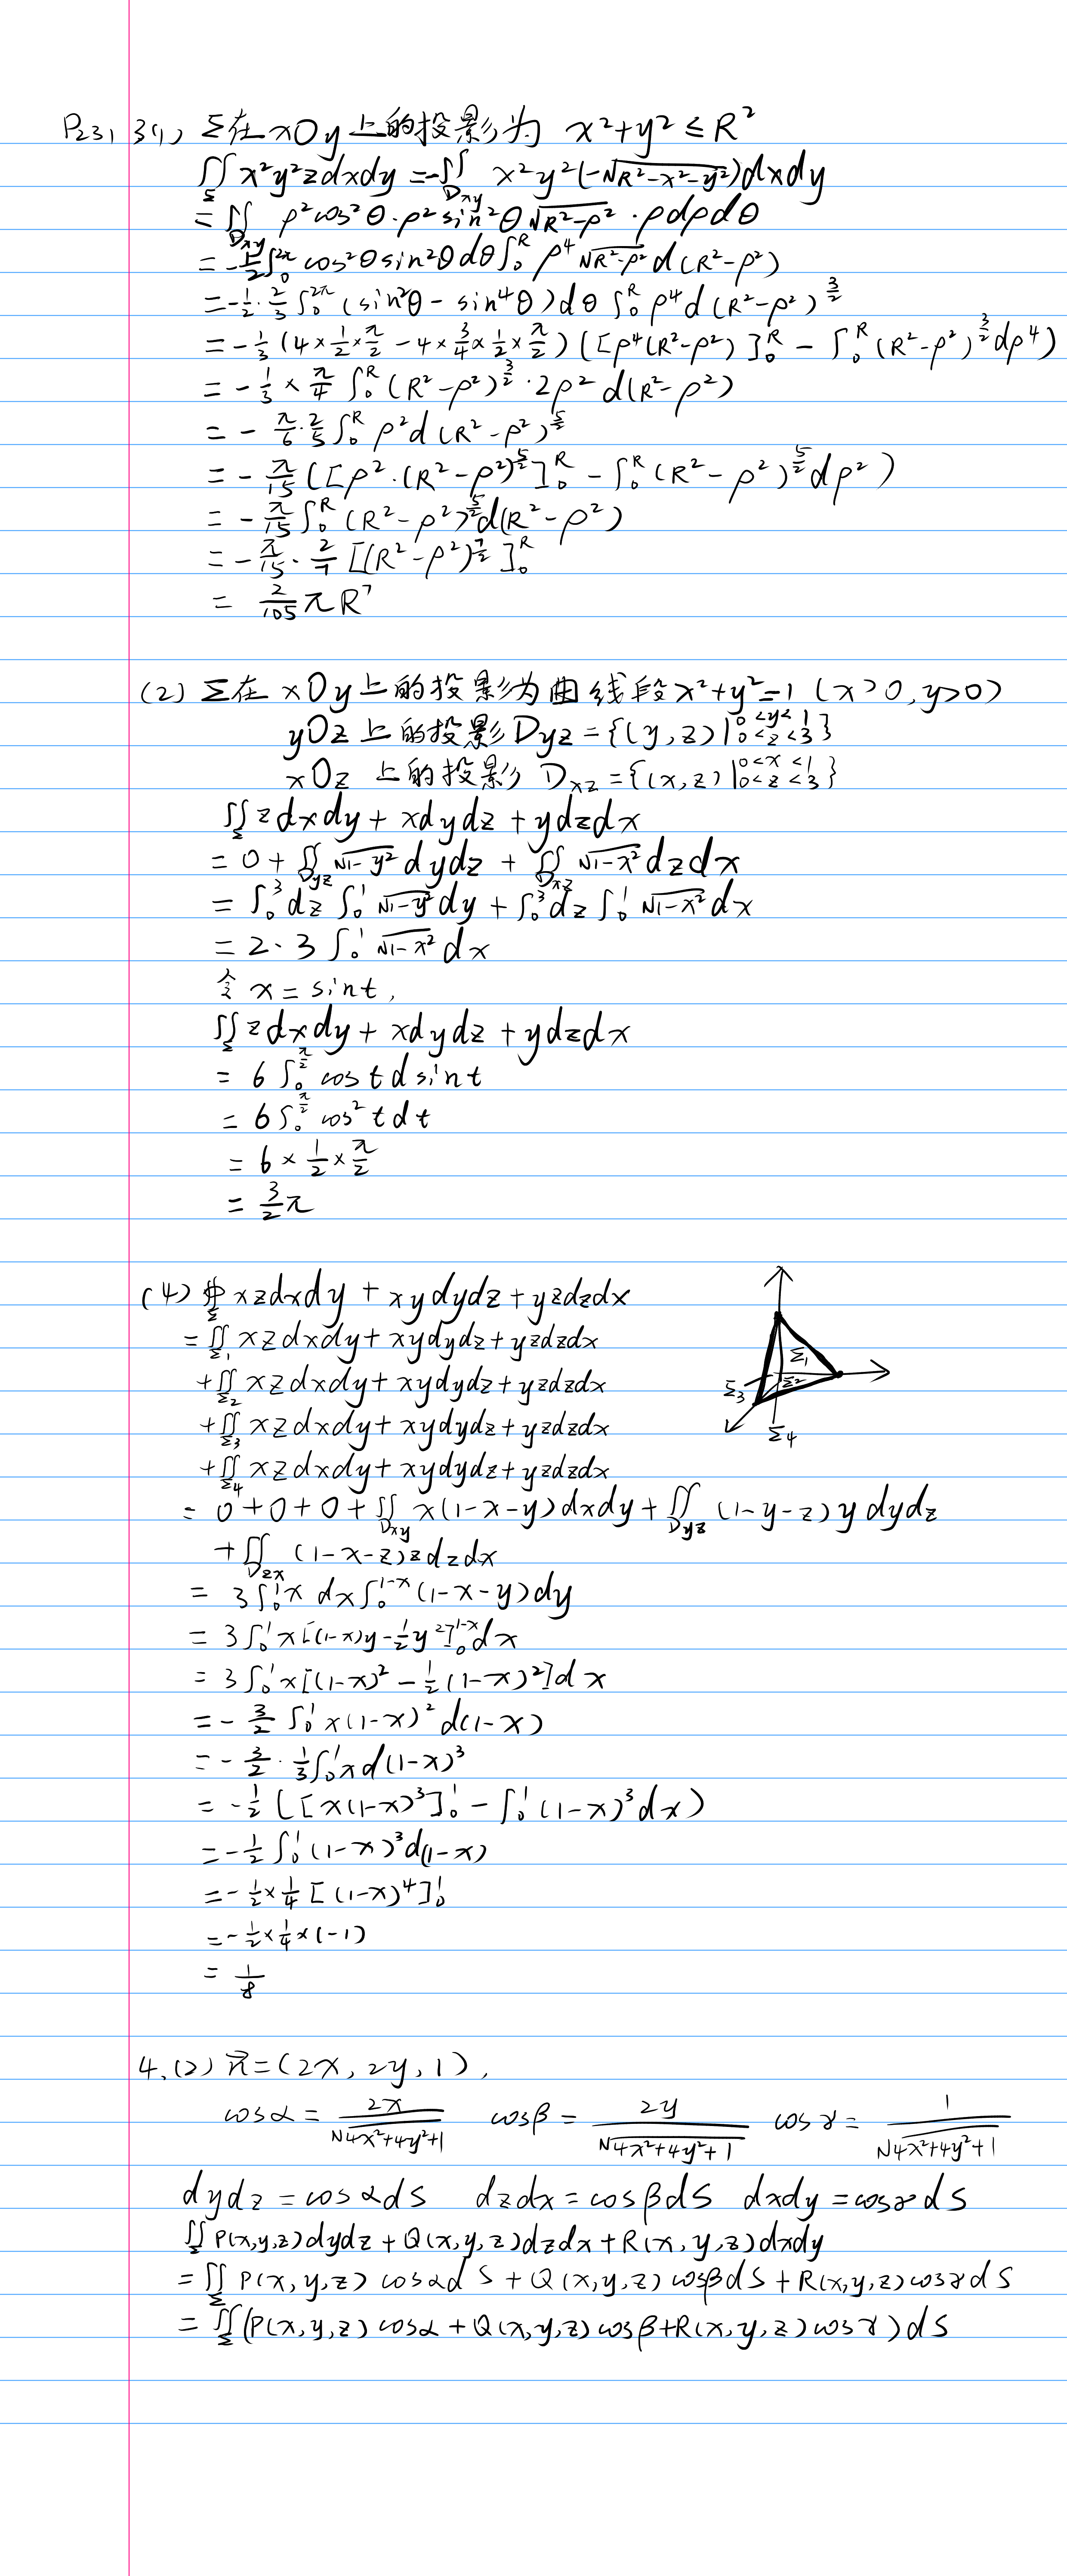 P231 3(1) Σ在xOy上的投影为 x²+y²≤R²
∬_Σ x²y²zdxdy = -∬_Dxy x²y²(-√(R²-x²-y²))dxdy
= ∬_Dxy ρ²cos²θ·ρ²sin²θ√(R²-ρ²)·ρdρdθ
= -1/2∫₀^2π cos²θsin²θdθ∫₀^R ρ⁴√(R²-ρ²)d(R²-ρ²)
= -1/2·2/3∫₀^2π(sin²θ-sin⁴θ)dθ∫₀^R ρ⁴d(R²-ρ²)^(3/2)
= -1/3(4×1/2×π/2-4×3/4×1/2×π/2)([ρ⁴(R²-ρ²)]₀^R-∫₀^R(R²-ρ²)^(3/2)dρ⁴)
= -1/3×π/4∫₀^R(R²-ρ²)^(3/2)·2ρ²d(R²-ρ²)
= -π/6·2/5∫₀^R ρ²d(R²-ρ²)^(5/2)
= -π/15([ρ²·(R²-ρ²)^(5/2)]₀^R-∫₀^R(R²-ρ²)^(5/2)dρ²)
= -π/15∫₀^R(R²-ρ²)^(5/2)d(R²-ρ²)
= -π/15·2/7[(R²-ρ²)^(7/2)]₀^R
= 2/105πR⁷
(2) Σ在xOy上的投影为曲线段x²+y²=1(x>0,y>0)
yOz上的投影Dyz={(y,z)|0<y<1 0<z<3}
xOz上的投影Dxz={(x,z)|0<x<1 0<z<3}
∬_Σ zdxdy+xdydz+ydzdx
= 0+∬_Dyz √(1-y²)dydz+∬_Dxz √(1-x²)dzdx
= ∫₀³dz∫₀¹√(1-y²)dy+∫₀³dz∫₀¹√(1-x²)dx
= 2·3∫₀¹√(1-x²)dx
令x=sint,
∬_Σ zdxdy+xdydz+ydzdx
= 6∫₀^(π/2) cos t d sin t
= 6∫₀^(π/2) cos²tdt
= 6×1/2×π/2
= 3/2π
(4) ∯_Σ xzdxdy+xydydz+yzdzdx
= ∬_Σ1 xzdxdy+xydydz+yzdzdx
+∬_Σ2 xzdxdy+xydydz+yzdzdx
+∬_Σ3 xzdxdy+xydydz+yzdzdx
+∬_Σ4 xzdxdy+xydydz+yzdzdx
Σ1
Σ2
Σ3
Σ4
= 0+0+0+∬_Dxy x(1-x-y)dxdy+∬_Dyz (1-y-z)ydydz
+∬_Dzx (1-x-z)zdzdx
= 3∫₀¹x dx∫₀^(1-x)(1-x-y)dy
= 3∫₀¹x[(1-x)y-1/2y²]₀^(1-x)dx
= 3∫₀¹x[(1-x)²-1/2(1-x)²]dx
= -3/2∫₀¹x(1-x)²d(1-x)
= -3/2·1/3∫₀¹xd(1-x)³
= -1/2([x(1-x)³]₀¹-∫₀¹(1-x)³dx)
= -1/2∫₀¹(1-x)³d(1-x)
= -1/2×1/4[(1-x)⁴]₀¹
= -1/2×1/4×(-1)
= 1/8
4.(2) n⃗=(2x,2y,1),
cosα=2x/√(4x²+4y²+1) cosβ=2y/√(4x²+4y²+1) cosγ=1/√(4x²+4y²+1)
dydz=cosαdS dzdx=cosβdS dxdy=cosγdS
∬_Σ P(x,y,z)dydz+Q(x,y,z)dzdx+R(x,y,z)dxdy
= ∬_Σ P(x,y,z)cosαdS+Q(x,y,z)cosβdS+R(x,y,z)cosγdS
= ∬_Σ(P(x,y,z)cosα+Q(x,y,z)cosβ+R(x,y,z)cosγ)dS